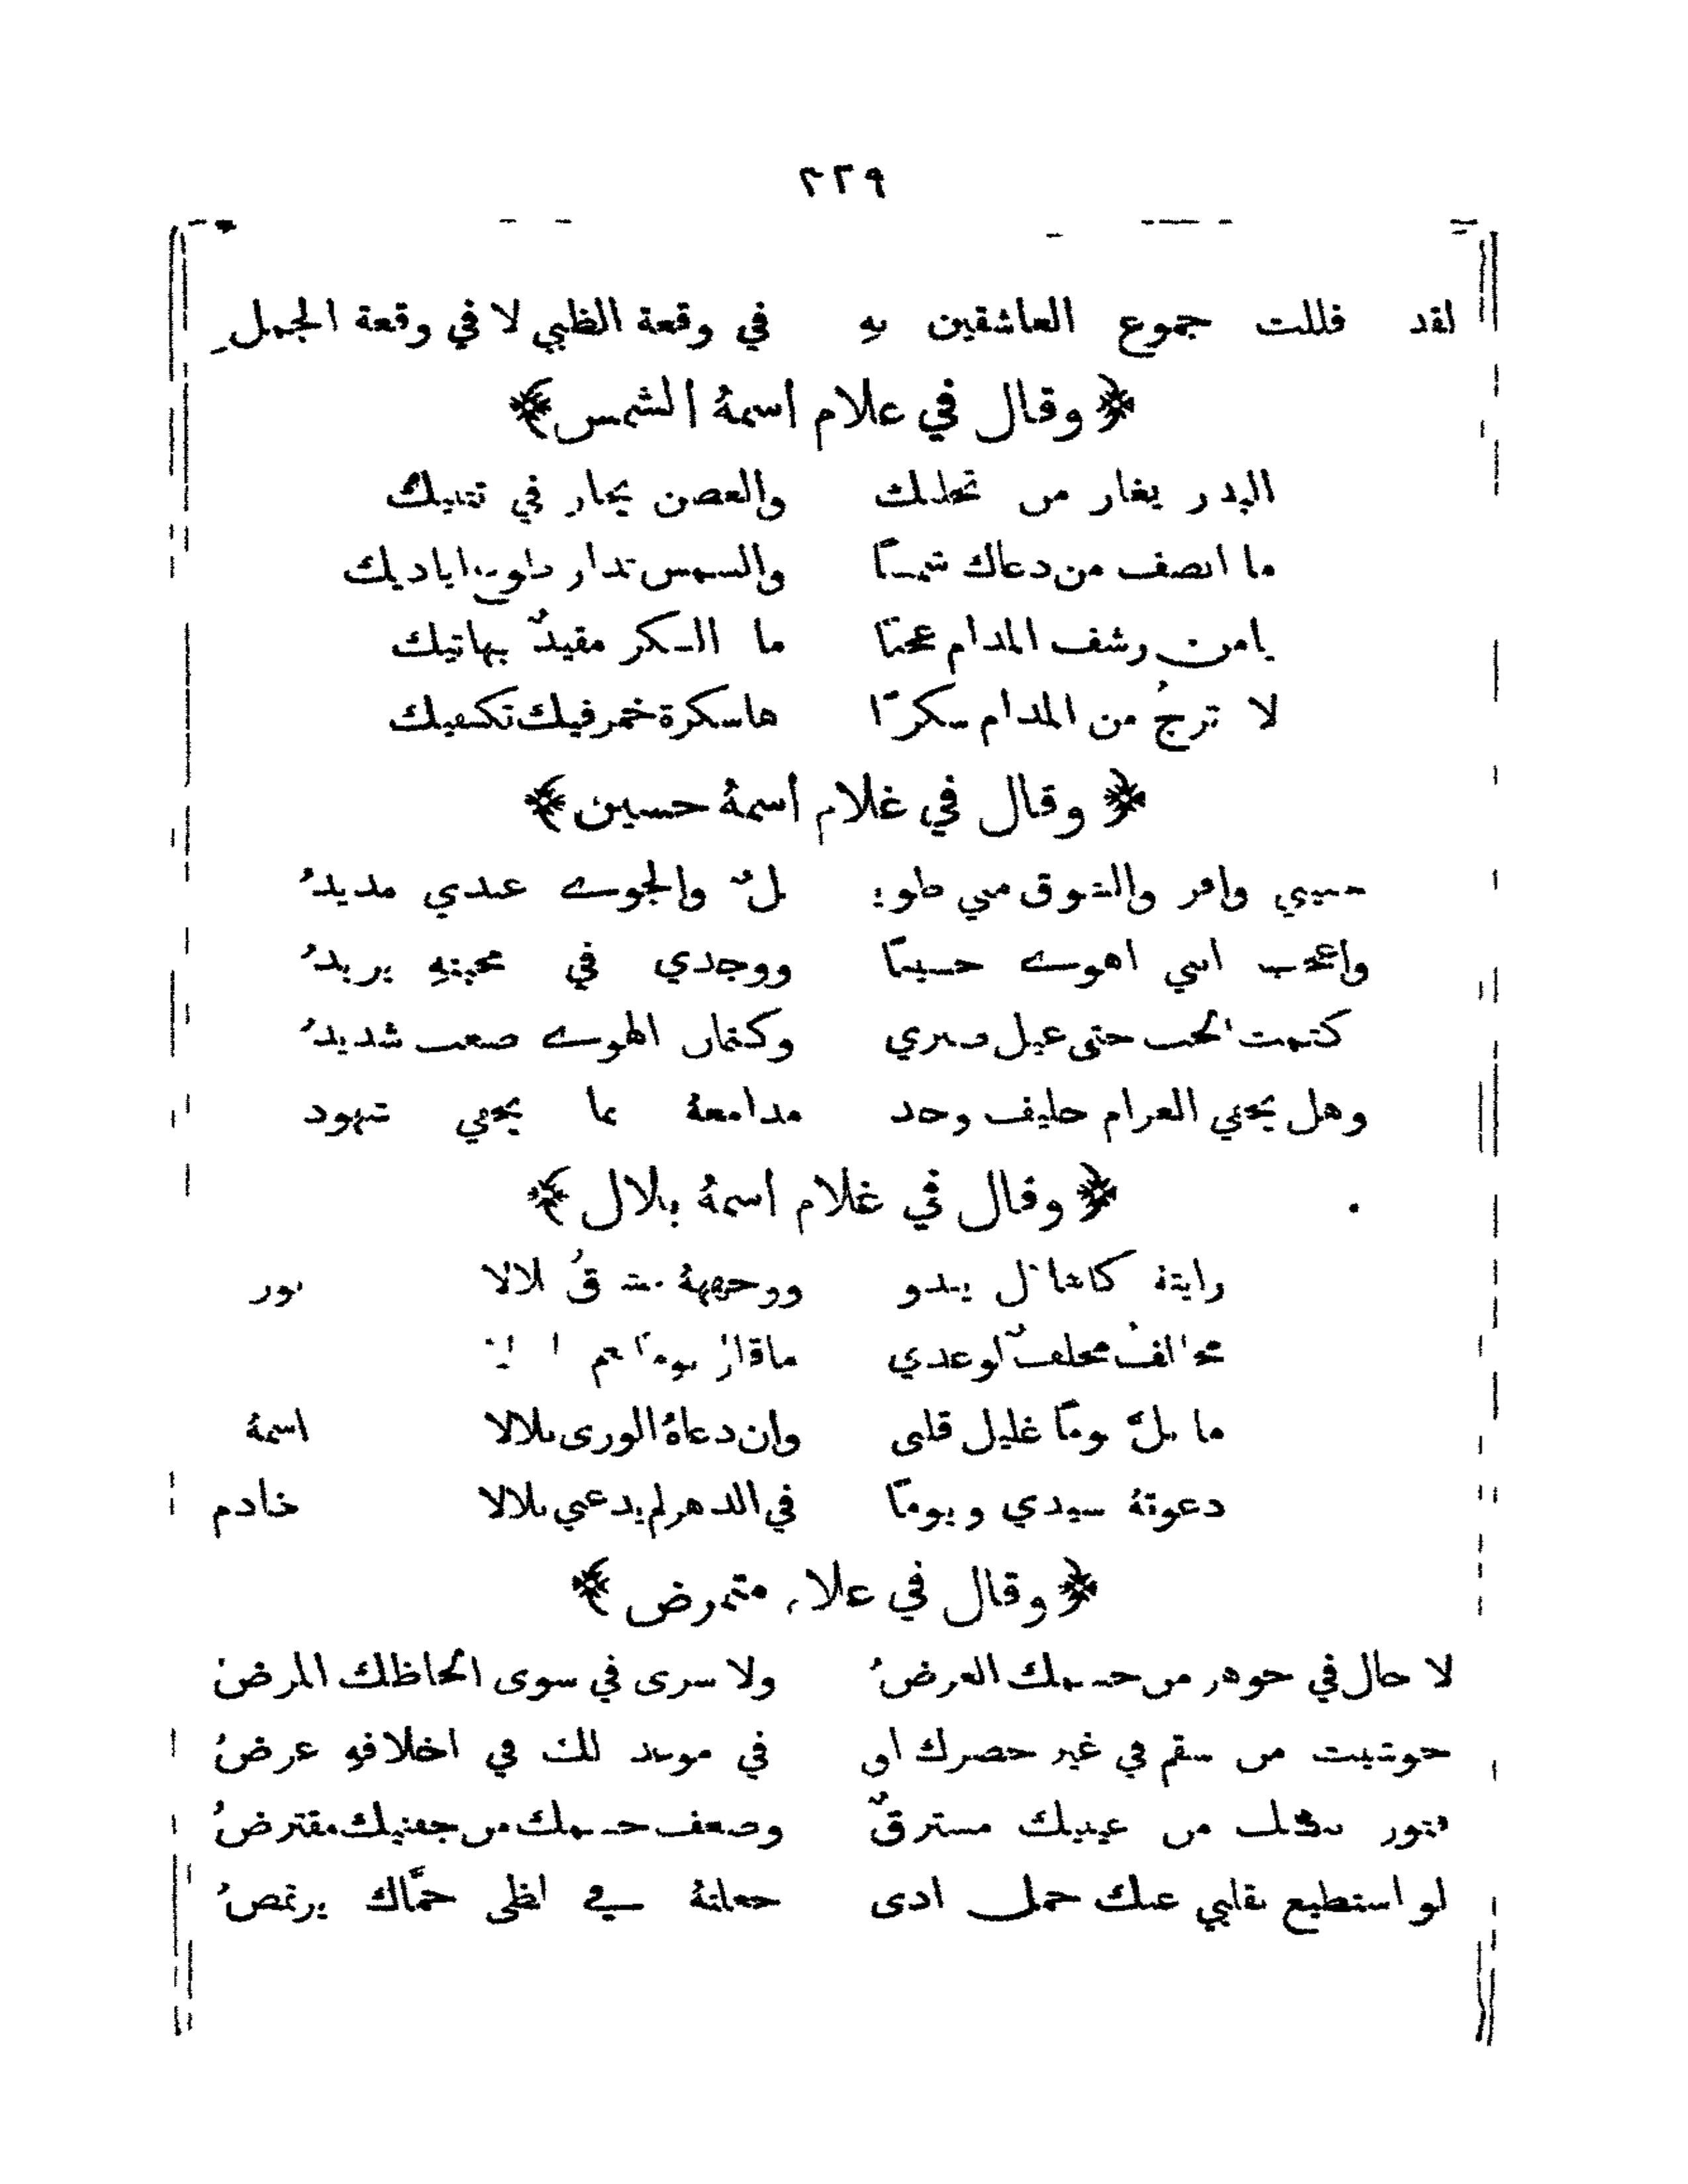 ٢٢٩
لقد فللت جموع العاشقين به في وقعة الظبي لا في وقعة الجملِ
﴿ وقال في غلام اسمهُ الشمس ﴾
البدر يغار من تجليك والغصن يحار في تثنيك
ما انصف من دعاك شمسًا والشمس تدار طوع اياديك
يا من رشف المدام عجبًا ما السكر مقيدٌ بهاتيك
لا ترجُ من المدام سكرًا ها سكرة خمر فيك تكفيك
﴿ وقال في غلام اسمهُ حسين ﴾
حبيبي وافر والشوق مني طويلٌ والجوى عندي مديدُ
واعجب انني اهوى حسينًا ووجدي في محبتهِ يزيدُ
كتمت الحب حتى عيل صبري وكتمان الهوى صعب شديدُ
وهل يخفي الغرام حليف وجد مدامعهُ بما يخفي شهود
﴿ وقال في غلام اسمهُ بلال ﴾
رايتهُ كاشا ل يبدو ووجههُ مشرقُ لالا نور
مخالفٌ مخلفٌ لوعدي ما قال يومًا نعم
ما بلَّ يومًا غليل قلبى وان دعاهُ الورى بلالا اسمهُ
دعوتهُ سيدي ويومًا في الدهر لم يدعني بلالا خادم
﴿ وقال في غلام متمرض ﴾
لا حال في جوهر من جسمك العرضُ ولا سرى في سوى الحاظك المرضُ
حوشيت من سقم في غير خصرك او في موعد لك في اخلافهِ عرضُ
فتور من عينيك مسترقٌ وضعف جسمك من جفنيك مقترضُ
لو استطيع بقلبي عنك حمل اذى جعلتهُ في لظى حمَّاك يرتمضُ